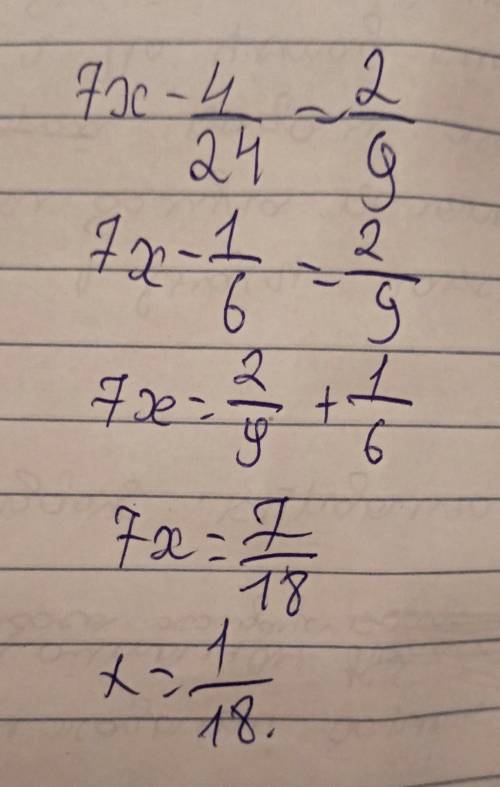 7x - 4/24 = 2/9
7x - 1/6 = 2/9
7x = 2/9 + 1/6
7x = 7/18
x = 1/18.